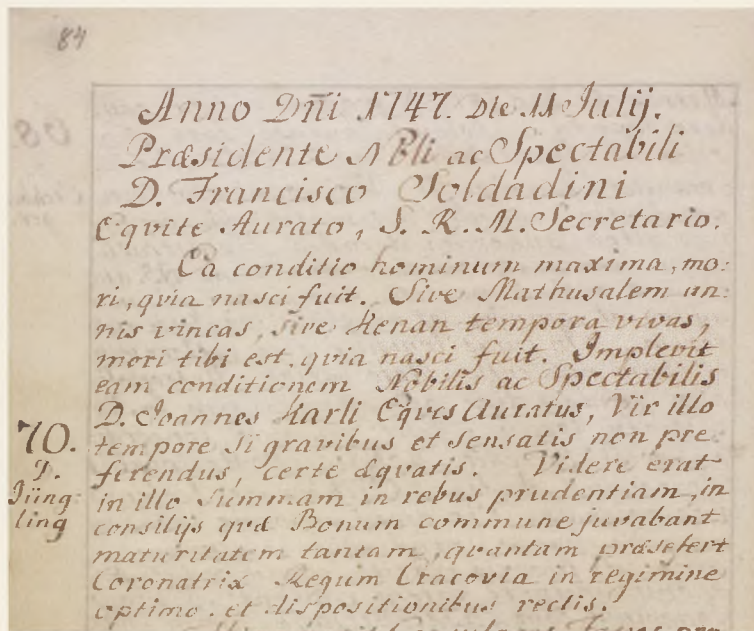 84
Anno Dñi 1747. Die 11 Julij.
Præsidente Nbli ac Spectabili
D. Francisco Soldadini
Eqvite Aurato, S. R. M. Secretario.
Ea conditio hominum maxima, mo:
ri, qvia nasci fuit. Sive Mathusalem an
nis vincas, sive Kenan tempora vivas,
mori tibi est, qvia nasci fuit. Implevit
eam conditionem Nobilis ac Spectabilis
D. Joannes Karli Eqves Auratus, Vir illo
70.
D.
Jüng:
ling
tempore si gravibus et sensatis non pre
ferendus, certe æqvatis. Videre erat
in illo summam in rebus prudentiam, in
consilijs qvæ Bonum commune juvabant
maturitatem tantam, qvantam præsefert
Coronatrix Regum Cracovia in regimine
optimo, et dispositionibus rectis.